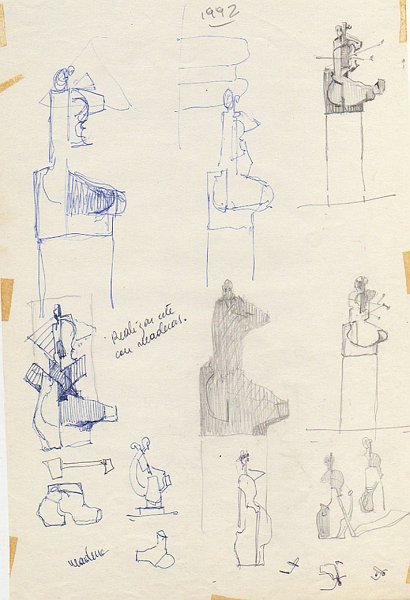 1992
Realizar este
con maderas.
madera